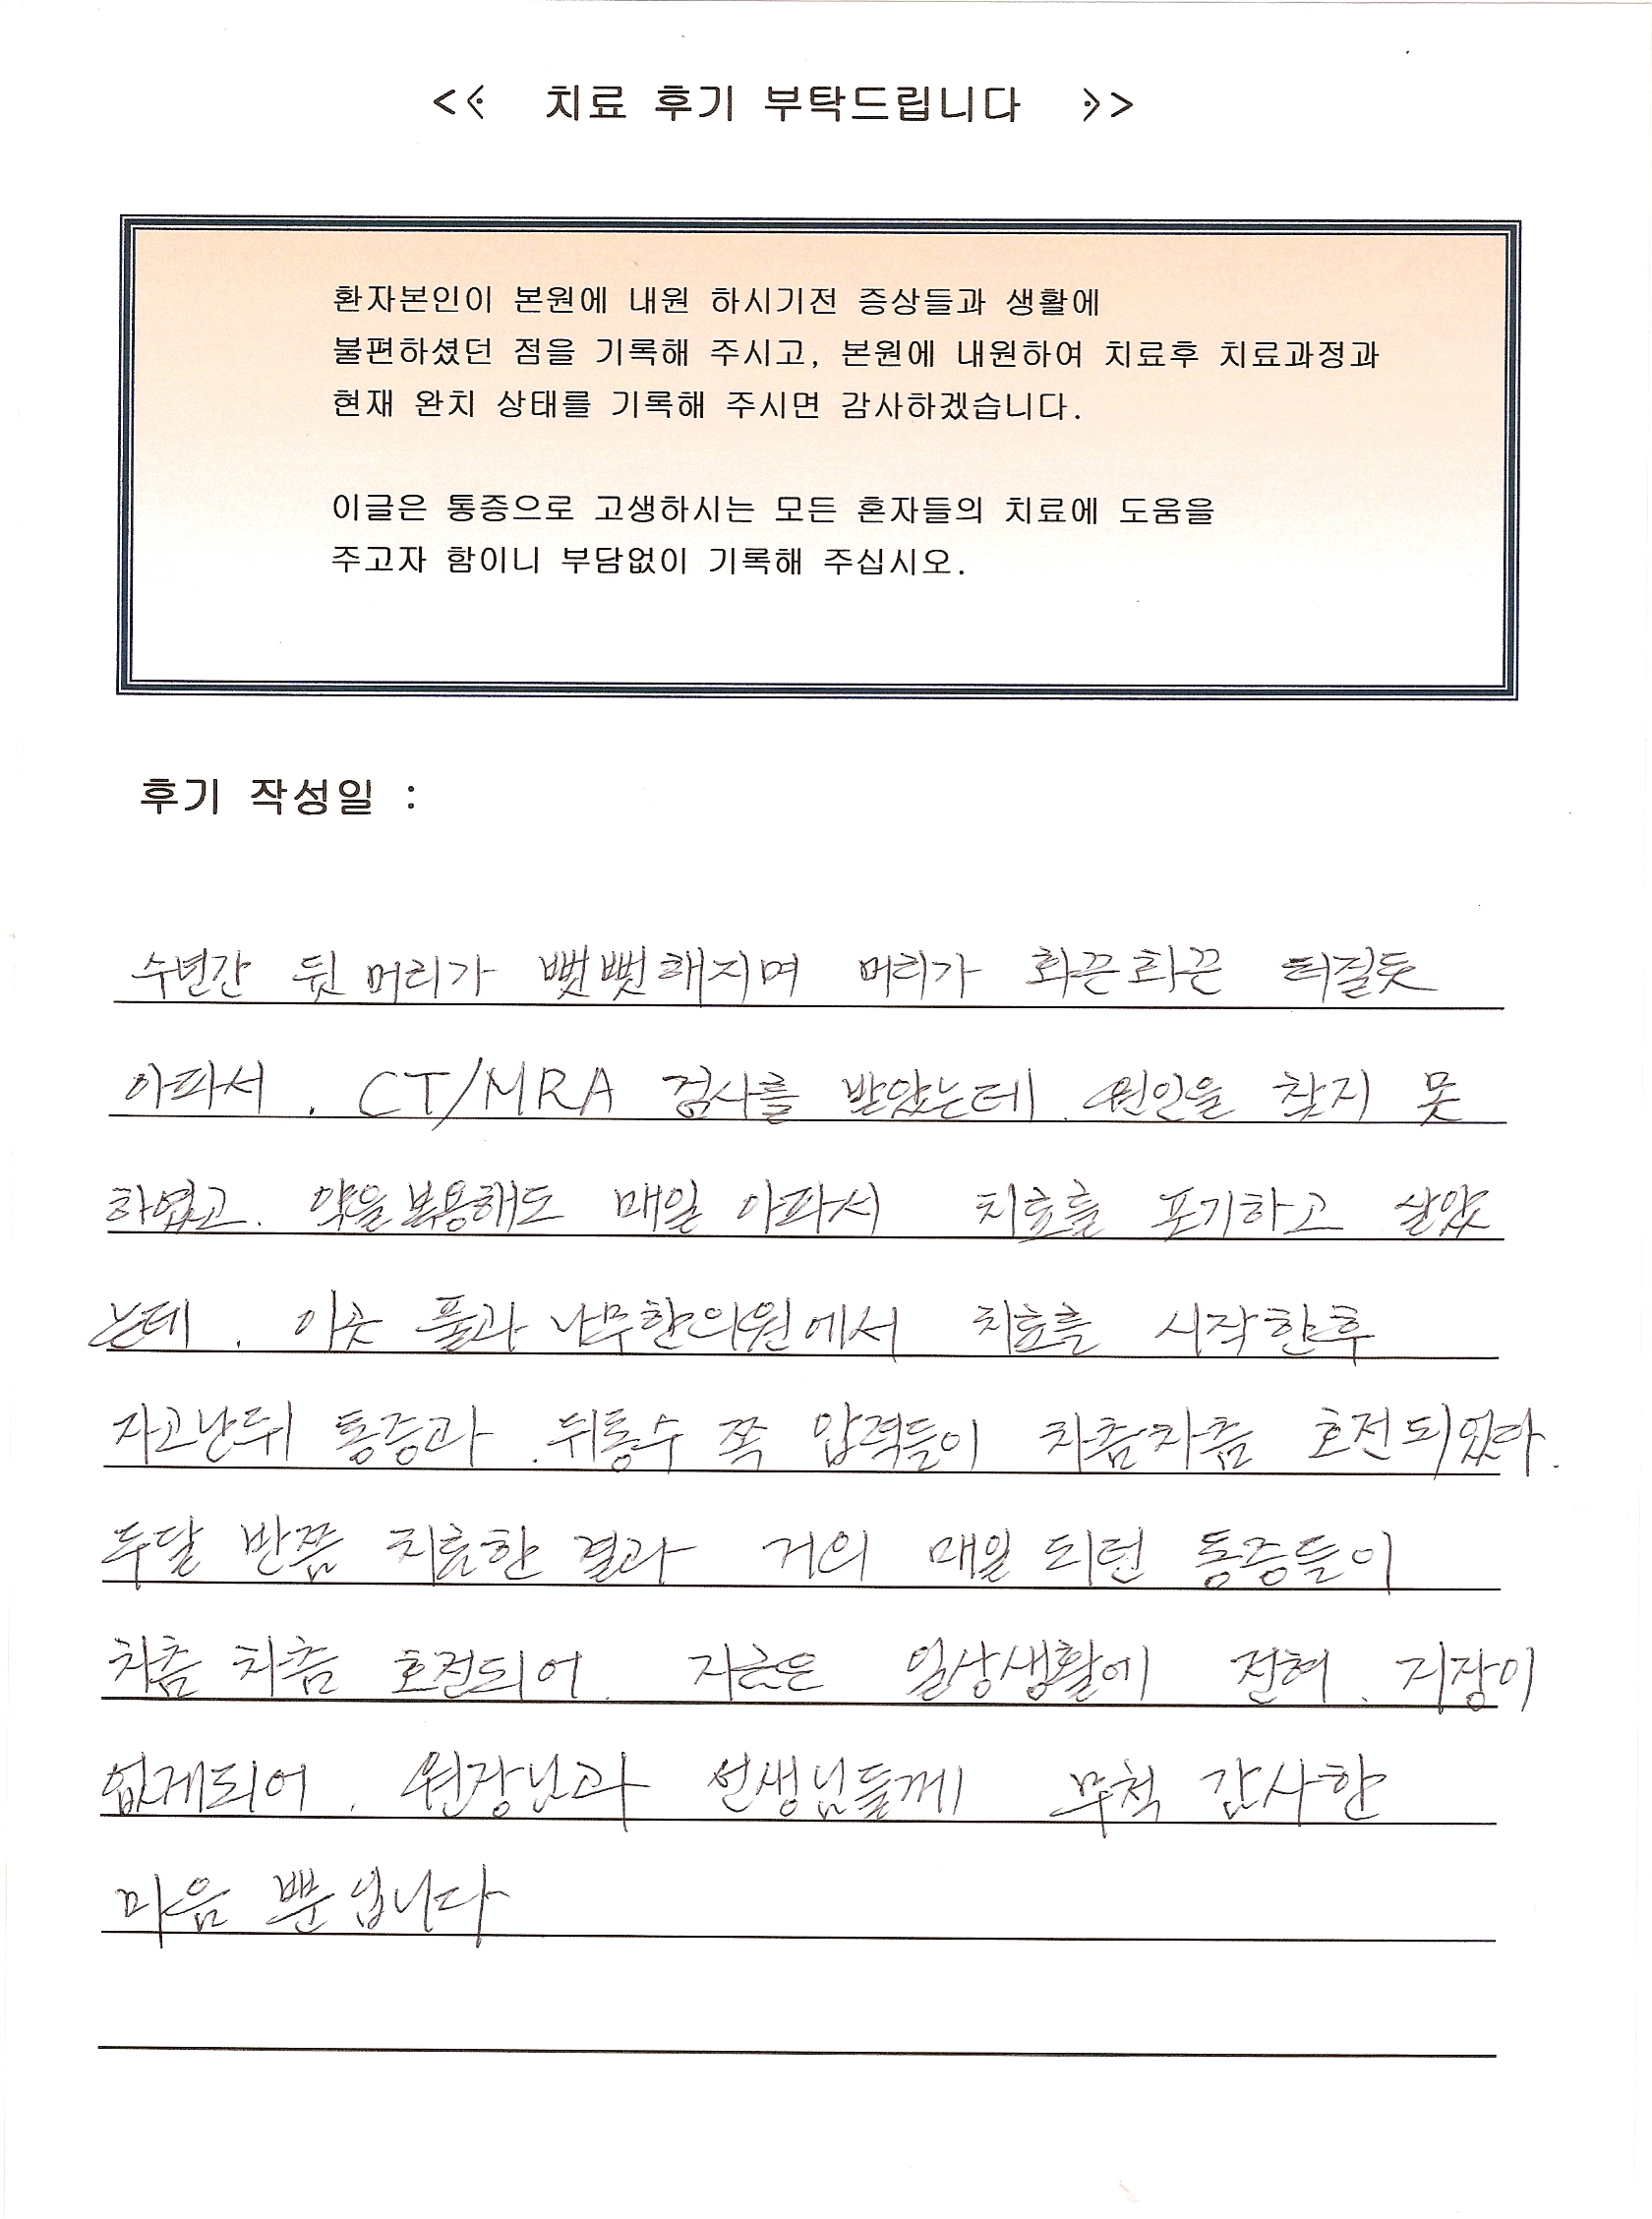 << 치료 후기 부탁드립니다 >>
환자본인이 본원에 내원 하시기전 증상들과 생활에
불편하셨던 점을 기록해 주시고, 본원에 내원하여 치료후 치료과정과
현재 완치 상태를 기록해 주시면 감사하겠습니다.
이글은 통증으로 고생하시는 모든 혼자들의 치료에 도움을
주고자 함이니 부담없이 기록해 주십시오.
후기 작성일 :
수년간 뒷머리가 뻣뻣해지며 머리가 화끈화끈 터질듯
아파서. CT/MRA 검사를 받았는데. 원인을 찾지 못
하였고. 약을 복용해도 매일 아파서 치료를 포기하고 살았
는데. 이곳 풀과 나무한의원에서 치료를 시작한후
자고난뒤 통증과. 뒤통수 쪽 압력들이 차츰차츰 호전되었다.
두달 반쯤 치료한 결과 거의 매일 되던 통증들이
차츰 차츰 호전되어. 지금은 일상생활에 전혀. 지장이
없게되어. 원장님과 선생님들께 무척 감사한
마음 뿐입니다